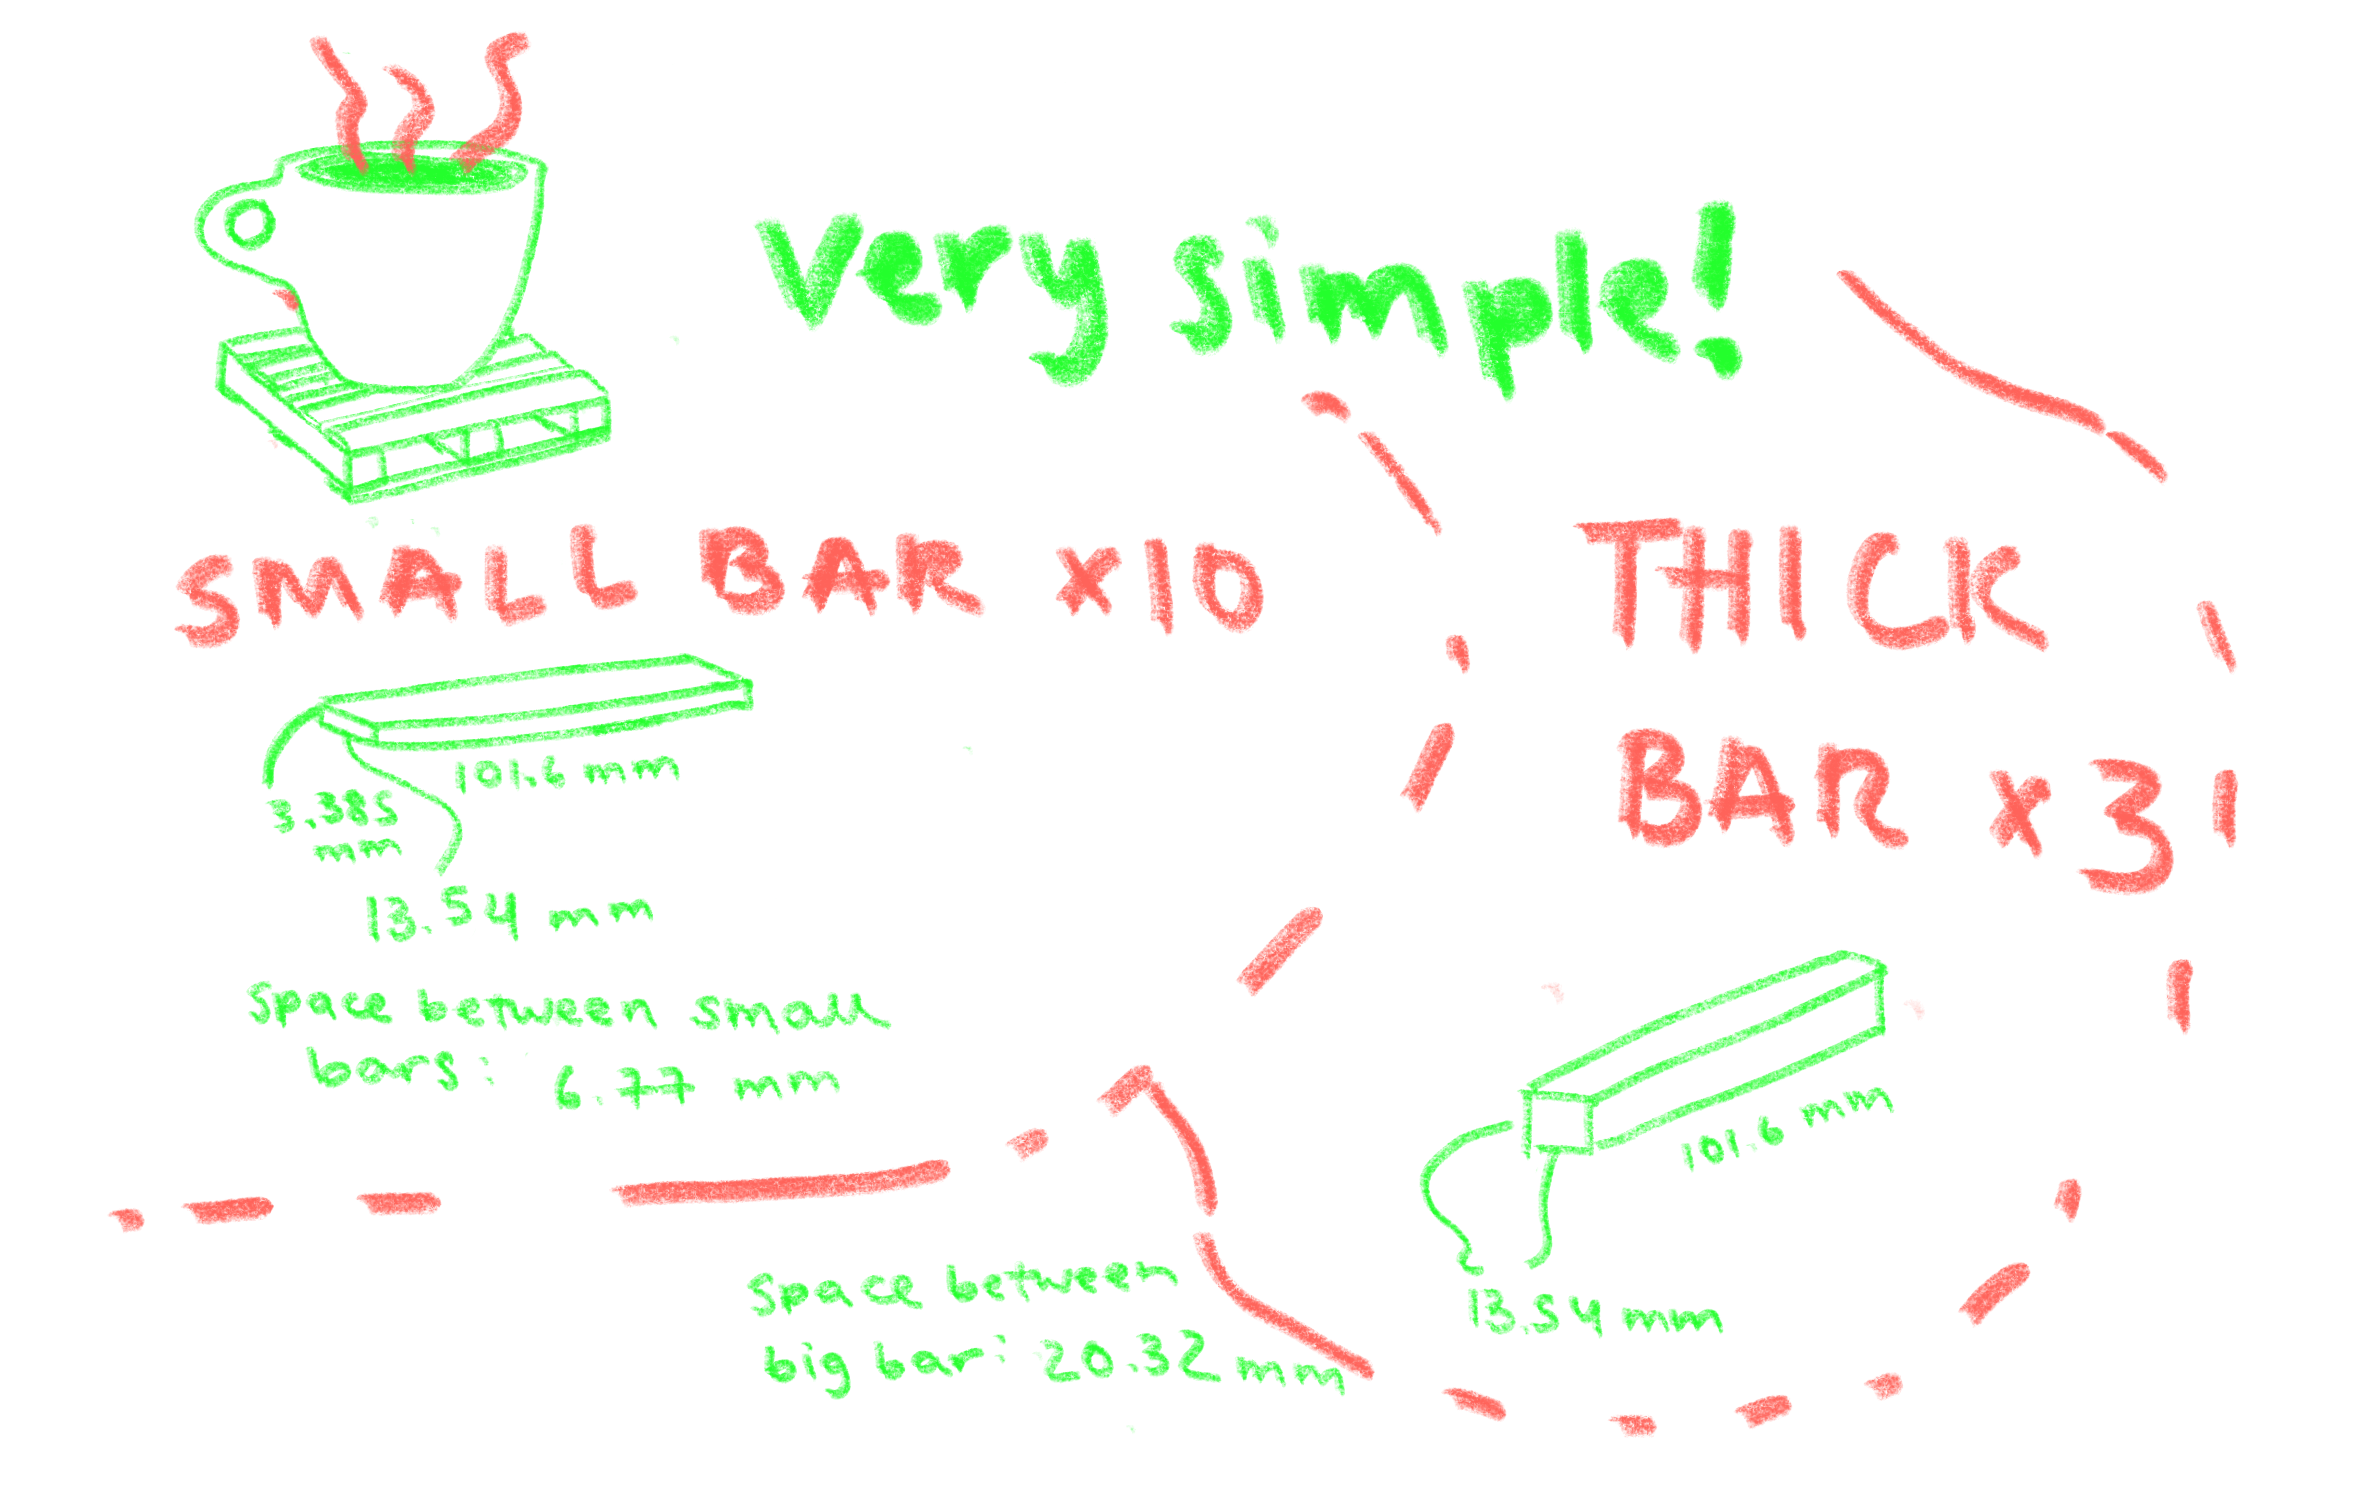 very simple!
SMALL BAR x10
101.6 mm
3.385
mm
13.54 mm
Space between small
bars: 6.77 mm
THICK
BAR x3
101.6 mm
13.54 mm
Space between
big bar: 20.32 mm